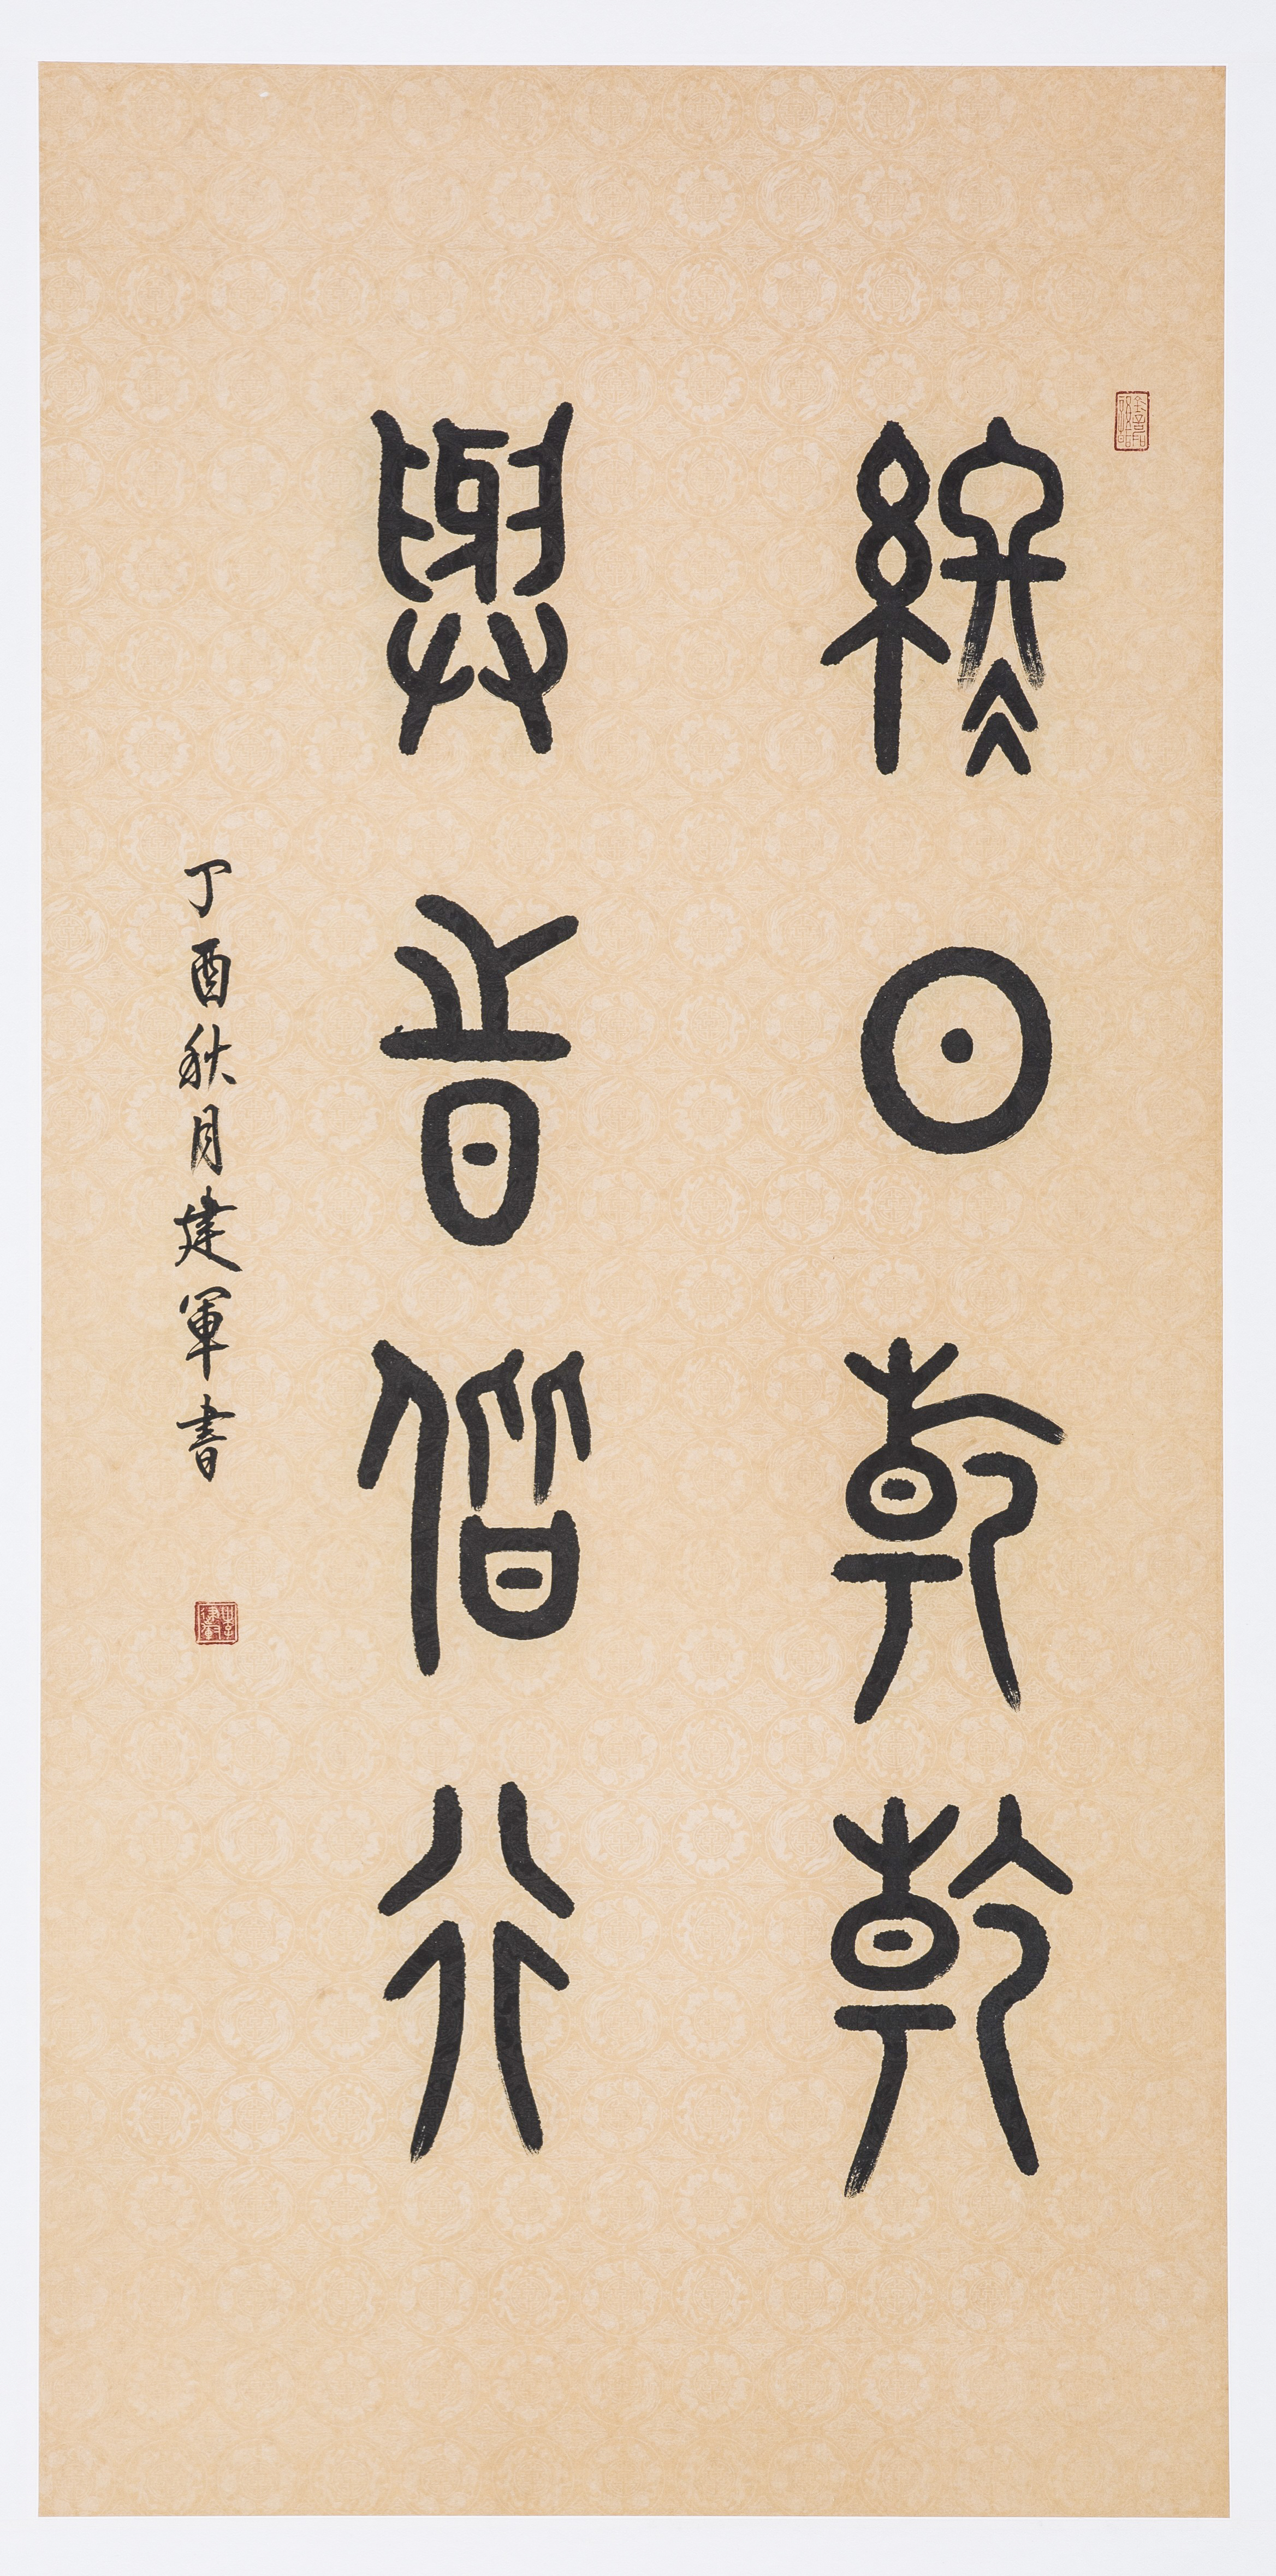 終日乾乾
與時偕行
丁酉秋月建軍書